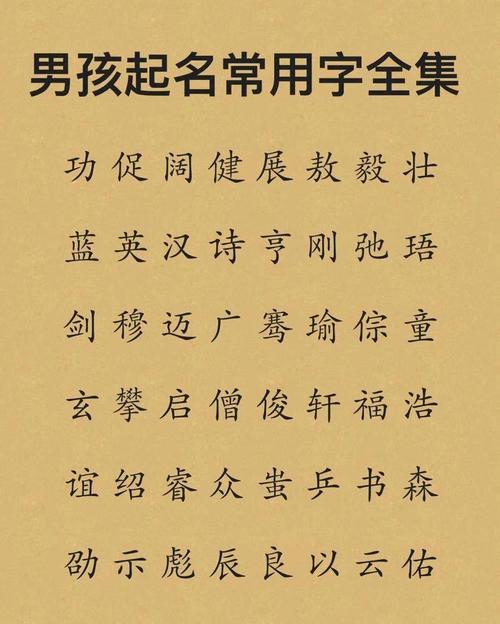 男孩起名常用字全集
功促阔健展敖毅壮
蓝英汉诗亨刚弛珸
剑穆迈广骞瑜倧童
玄攀启僧俊轩福浩
谊绍睿众蚩乒书森
劭示彪辰良以云佑